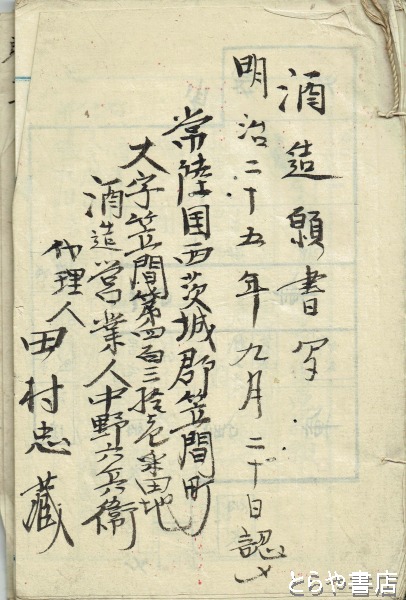 酒造願書写
明治二十五年九月二十日認メ
常陸国西茨城郡笠間町
大字笠間第四百三拾壱番地
酒造営業人中野六兵衛
代理人
田村忠蔵
とらや書店